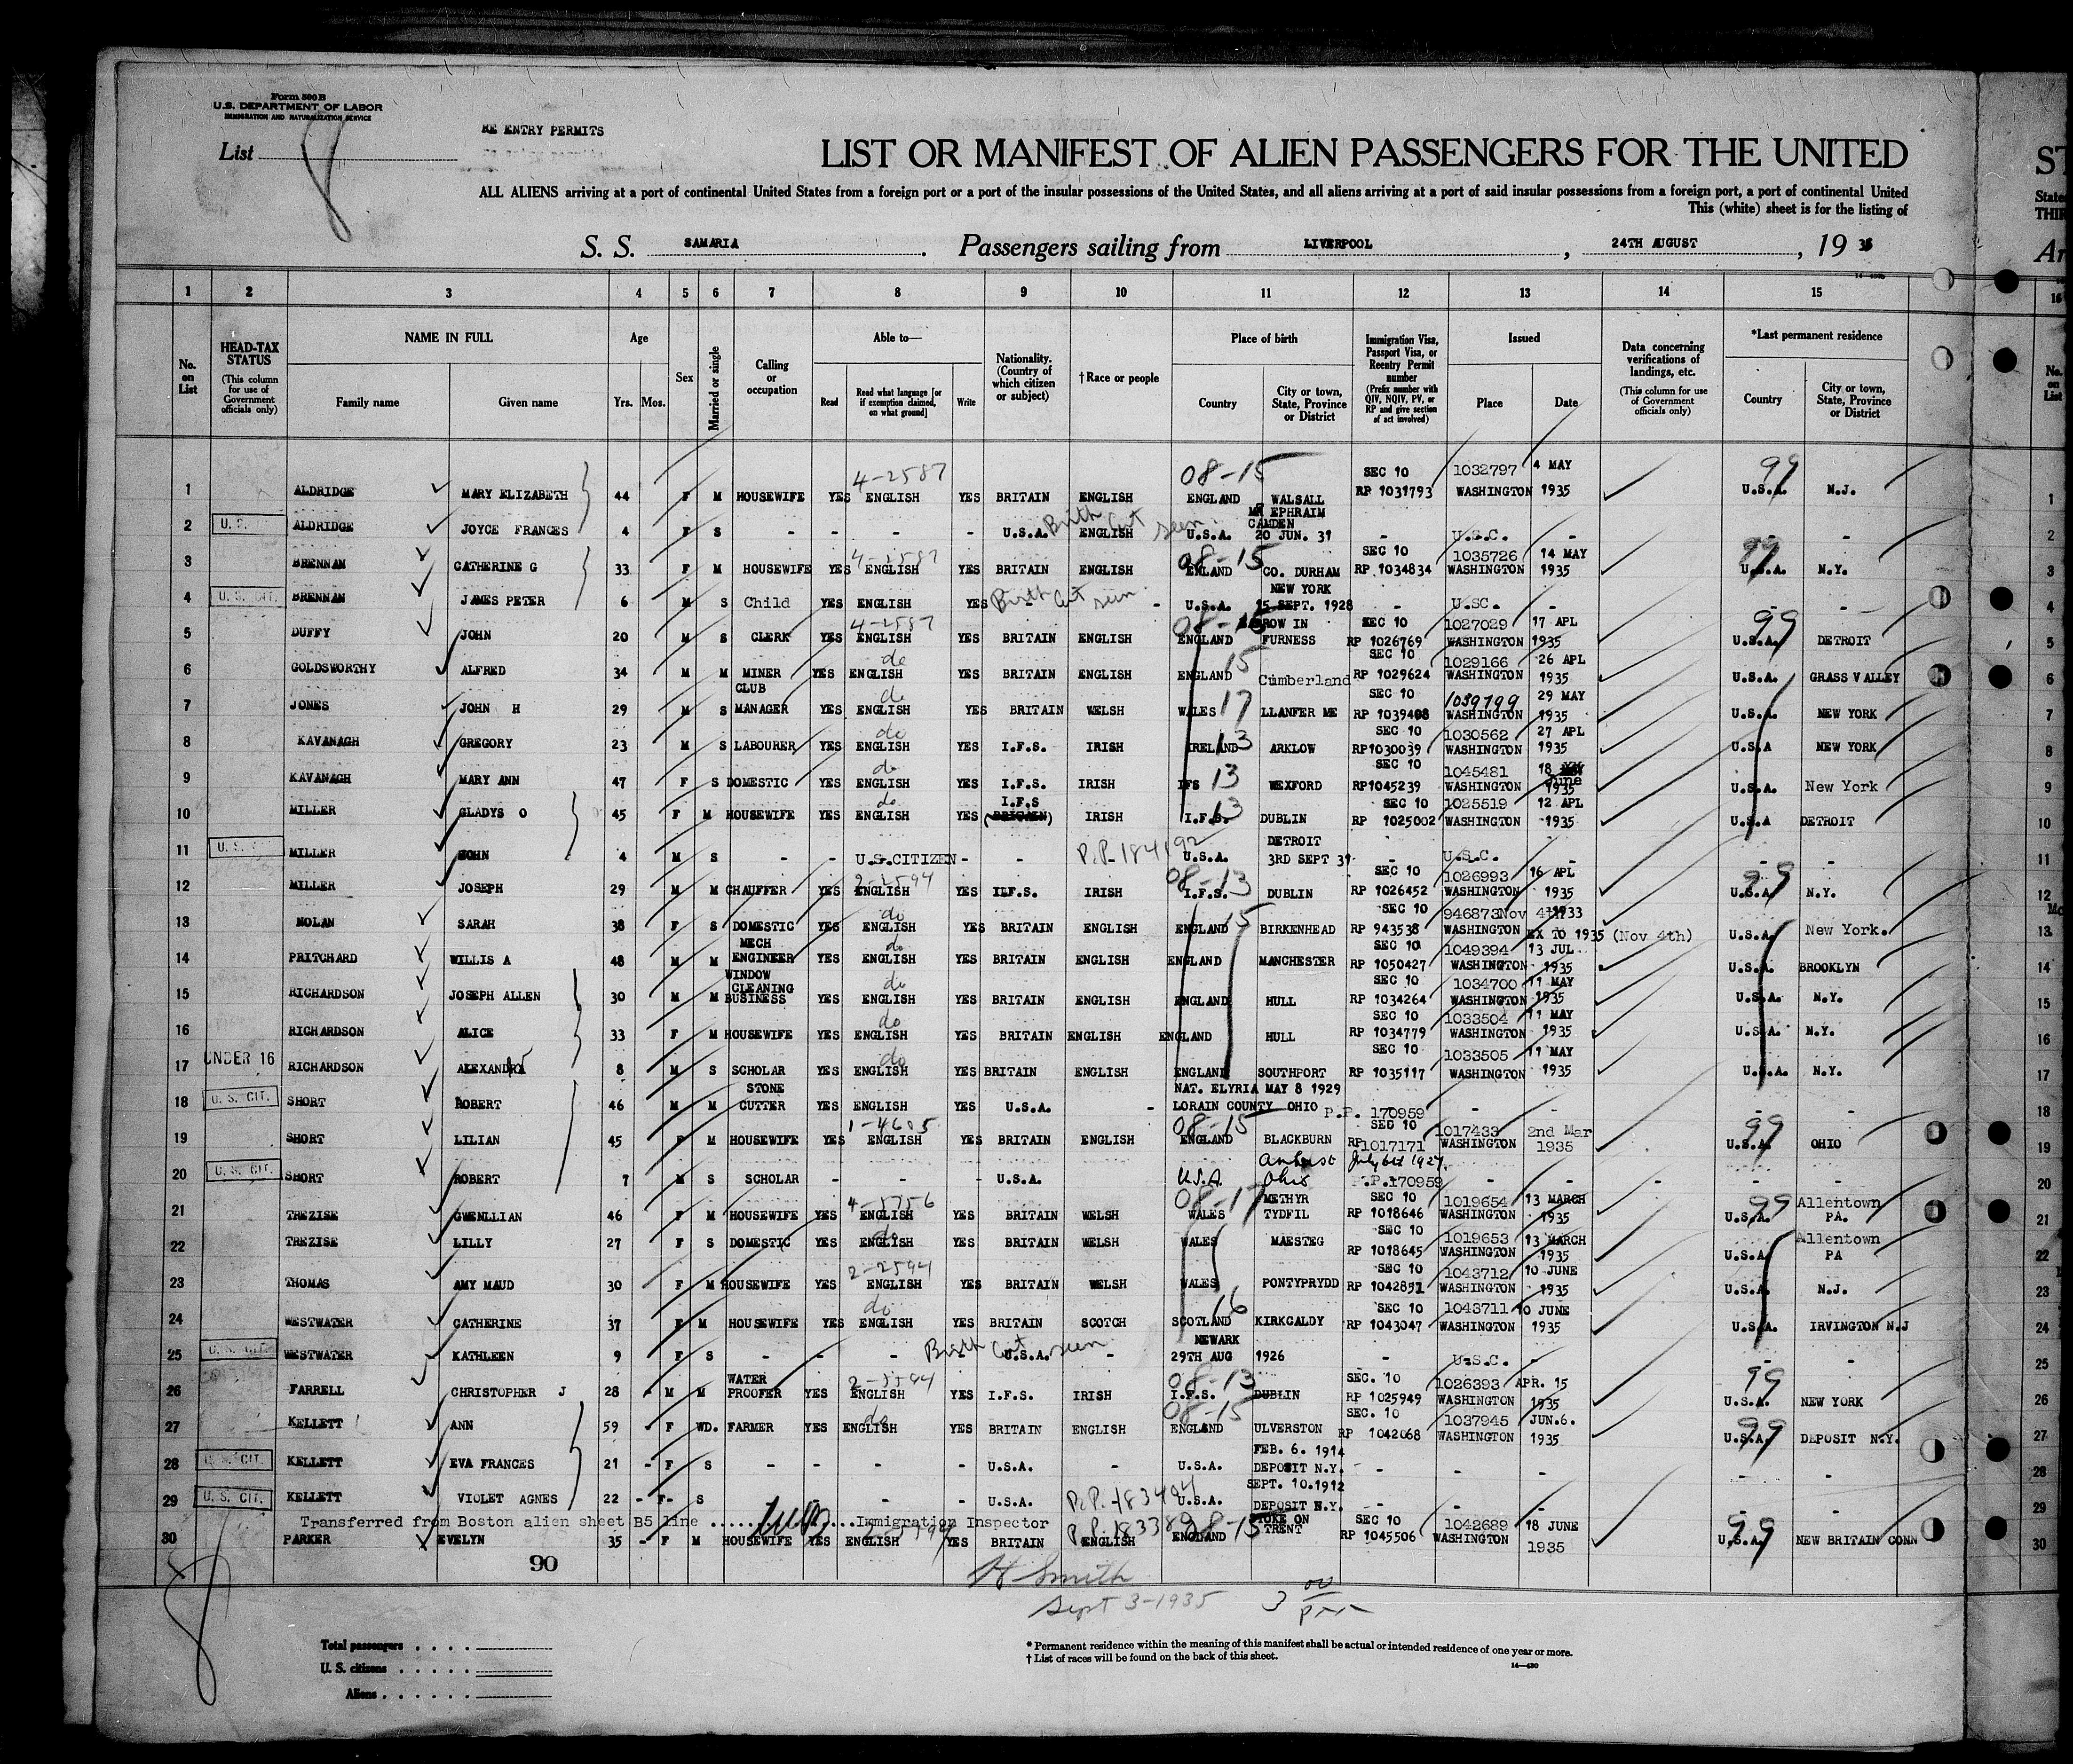 Form 500 B
U.S. DEPARTMENT OF LABOR
IMMIGRATION AND NATURALIZATION SERVICE
RE ENTRY PERMITS
List 8
LIST OR MANIFEST OF ALIEN PASSENGERS FOR THE UNITED
ALL ALIENS arriving at a port of continental United States from a foreign port or a port of the insular possessions of the United States, and all aliens arriving at a port of said insular possessions from a foreign port, a port of continental United
This (white) sheet is for the listing of
S. S. SAMARIA. Passengers sailing from LIVERPOOL, 24TH AUGUST, 19 35
1 2 3 4 5 6 7 8 9 10 11 12 13 14 15
No. on List
HEAD-TAX STATUS (This column for use of Government officials only)
NAME IN FULL Family name Given name
Age Yrs. Mos.
Sex
Married or single
Calling or occupation
Able to— Read Read what language [or if exemption claimed, on what ground] Write
Nationality. (Country of which citizen or subject)
† Race or people
Place of birth Country City or town, State, Province or District
Immigration Visa, Passport Visa, or Reentry Permit number (Prefix number with QIV, NQIV, PV, or RP and give section of act involved)
Issued Place Date
Data concerning verifications of landings, etc. (This column for use of Government officials only)
*Last permanent residence Country City or town, State, Province or District
4-2587 08-15 SEC 10 1032797 4 MAY 99
1 ALDRIDGE MARY ELIZABETH 44 F M HOUSEWIFE YES ENGLISH YES BRITAIN ENGLISH ENGLAND WALSALL RP 1031793 WASHINGTON 1935 U.S.A. N.J.
MT EPHRAIM CAMDEN
2 ALDRIDGE JOYCE FRANCES 4 F S - - - - U.S.A. ENGLISH Birth Cert seen U.S.A. 20 JUN. 31 - U.S.C. - - -
4-2587 08-15 SEC 10 1035726 14 MAY 99
3 BRENNAN CATHERINE G 33 F M HOUSEWIFE YES ENGLISH YES BRITAIN ENGLISH ENGLAND CO. DURHAM RP 1034834 WASHINGTON 1935 U.S.A. N.Y.
NEW YORK
4 U. S. CIT. BRENNAN JAMES PETER 6 M S Child YES ENGLISH YES Birth Cert seen - U.S.A. 15 SEPT. 1928 - U.SC. - - -
4-2587 08-15 BARROW IN SEC 10 1027029 17 APL 99
5 DUFFY JOHN 20 M S CLERK YES ENGLISH YES BRITAIN ENGLISH ENGLAND FURNESS RP 1026769 WASHINGTON 1935 U.S.A. DETROIT
do 15 SEC 10 1029166 26 APL
6 GOLDSWORTHY ALFRED 34 M M MINER YES ENGLISH YES BRITAIN ENGLISH ENGLAND Cumberland RP 1029624 WASHINGTON 1935 U.S.A. GRASS VALLEY
CLUB do 17 SEC 10 1039799 29 MAY
7 JONES JOHN H 29 M S MANAGER YES ENGLISH YES BRITAIN WELSH WALES LLANFER ME RP 1039408 WASHINGTON 1935 U.S.A. NEW YORK
do 13 SEC 10 1030562 27 APL
8 KAVANAGH GREGORY 23 M S LABOURER YES ENGLISH YES I.F.S. IRISH IRELAND ARKLOW RP1030039 WASHINGTON 1935 U.S.A NEW YORK
do 13 SEC 10 1045481 18 June
9 KAVANAGH MARY ANN 47 F S DOMESTIC YES ENGLISH YES I.F.S. IRISH IFS WEXFORD RP1045239 WASHINGTON 1935 U.S.A. New York
do I.F.S 13 SEC 10 1025519 12 APL
10 MILLER GLADYS O 45 F M HOUSEWIFE YES ENGLISH YES (BRITAIN) IRISH I.F.S. DUBLIN RP 1025002 WASHINGTON 1935 U.S.A DETROIT
DETROIT
11 MILLER JOHN 4 M S - - U.S.CITIZEN - - P.P.-184192 U.S.A. 3RD SEPT 31 - U.S.C. - - -
2-2594 08-13 SEC 10 1026993 16 APL 99
12 MILLER JOSEPH 29 M M CHAUFFER YES ENGLISH YES I.F.S. IRISH I.F.S. DUBLIN RP 1026452 WASHINGTON 1935 U.S.A. N.Y.
do 15 SEC 10 946873 Nov 4th 1933
13 NOLAN SARAH 38 F S DOMESTIC YES ENGLISH YES BRITAIN ENGLISH ENGLAND BIRKENHEAD RP 943538 WASHINGTON EX TO 1935 (Nov 4th) U.S.A. New York.
MECH do SEC 10 1049394 13 JUL
14 PRITCHARD WILLIS A 48 M M ENGINEER YES ENGLISH YES BRITAIN ENGLISH ENGLAND MANCHESTER RP 1050427 WASHINGTON 1935 U.S.A. BROOKLYN
WINDOW CLEANING do SEC 10 1034700 11 MAY
15 RICHARDSON JOSEPH ALLEN 30 M M BUSINESS YES ENGLISH YES BRITAIN ENGLISH ENGLAND HULL RP 1034264 WASHINGTON 1935 U.S.A. N.Y.
do SEC 10 1033504 11 MAY
16 RICHARDSON ALICE 33 F M HOUSEWIFE YES ENGLISH YES BRITAIN ENGLISH ENGLAND HULL RP 1034779 WASHINGTON 1935 U.S.A. N.Y.
do SEC 10 1033505 11 MAY
17 UNDER 16 RICHARDSON 8 M S SCHOLAR YES ENGLISH YES BRITAIN ENGLISH ENGLAND SOUTHPORT RP 1035117 WASHINGTON 1935 U.S.A. N.Y.
STONE NAT. ELYRIA MAY 8 1929
18 U. S. CIT. SHORT ROBERT 46 M M CUTTER YES ENGLISH YES U.S.A. - LORAIN COUNTY OHIO P.P. 170959 - - - -
1-4605 08-15 SEC 10 1017433 2nd Mar 99
19 SHORT LILIAN 45 F M HOUSEWIFE YES ENGLISH YES BRITAIN ENGLISH ENGLAND BLACKBURN RP 1017171 WASHINGTON 1935 U.S.A. OHIO
Amherst July 6th 1927.
20 U. S. CIT. SHORT ROBERT 7 M S SCHOLAR - - - U.S.A. U.S.A. Ohio P.P.170959 - - - -
4-5756 08-17 METHYR SEC 10 1019654 13 MARCH 99 Allentown
21 TREZISE GWENLLIAN 46 F M HOUSEWIFE YES ENGLISH YES BRITAIN WELSH WALES TYDFIL RP 1018646 WASHINGTON 1935 U.S.A. PA.
do SEC 10 1019653 13 MARCH Allentown
22 TREZISE LILLY 27 F S DOMESTIC YES ENGLISH YES BRITAIN WELSH WALES MAESTEG RP 1018645 WASHINGTON 1935 U.S.A PA
2-2594 SEC 10 1043712 10 JUNE
23 THOMAS AMY MAUD 30 F M HOUSEWIFE YES ENGLISH YES BRITAIN WELSH WALES PONTYPRYDD RP 1042851 WASHINGTON 1935 U.S.A. N.J.
do 16 SEC 10 1043711 10 JUNE
24 WESTWATER CATHERINE 37 F M HOUSEWIFE YES ENGLISH YES BRITAIN SCOTCH SCOTLAND KIRKCALDY RP 1043047 WASHINGTON 1935 U.S.A. IRVINGTON N.J
NEWARK
25 U. S. CIT. WESTWATER KATHLEEN 9 F S - - - - Birth Cert seen U.S.A. - 29TH AUG 1926 - U.S.C. - - -
WATER 08-13 SEC. 10 1026393 APR. 15 99
26 FARRELL CHRISTOPHER J 28 - M M PROOFER YES ENGLISH YES I.F.S. IRISH I.F.S. DUBLIN RP 1025949 WASHINGTON 1935 U.S.A. NEW YORK
do 08-15 SEC. 10 1037945 JUN.6.
27 KELLETT ANN 59 - F WD. FARMER YES ENGLISH YES BRITAIN ENGLISH ENGLAND ULVERSTON RP 1042068 WASHINGTON 1935 99 U.S.A. DEPOSIT N.Y.
FEB. 6. 1914
28 U. S. CIT. KELLETT EVA FRANCES 21 - F S - - - - U.S.A. - U.S.A. DEPOSIT N.Y. - - - - -
SEPT. 10.1912
29 U. S. CIT. KELLETT VIOLET AGNES 22 - F- S - - U.S.A. P.P.-183494 U.S.A. DEPOSIT N.Y. - - - - -
Transferred from Boston alien sheet B5 line ........ Immigration Inspector P.P.183389 08-15 STOKE ON TRENT SEC 10 1042689 18 JUNE 99
30 PARKER EVELYN 35 - F M HOUSEWIFE YES ENGLISH YES BRITAIN ENGLISH ENGLAND RP 1045506 WASHINGTON 1935 U.S.A. NEW BRITAIN CONN
90
H Smith
Sept 3-1935 3 00
Total passengers . . . .
U. S. citizens . . . . .
Aliens . . . . . .
* Permanent residence within the meaning of this manifest shall be actual or intended residence of one year or more.
† List of races will be found on the back of this sheet.
14—430